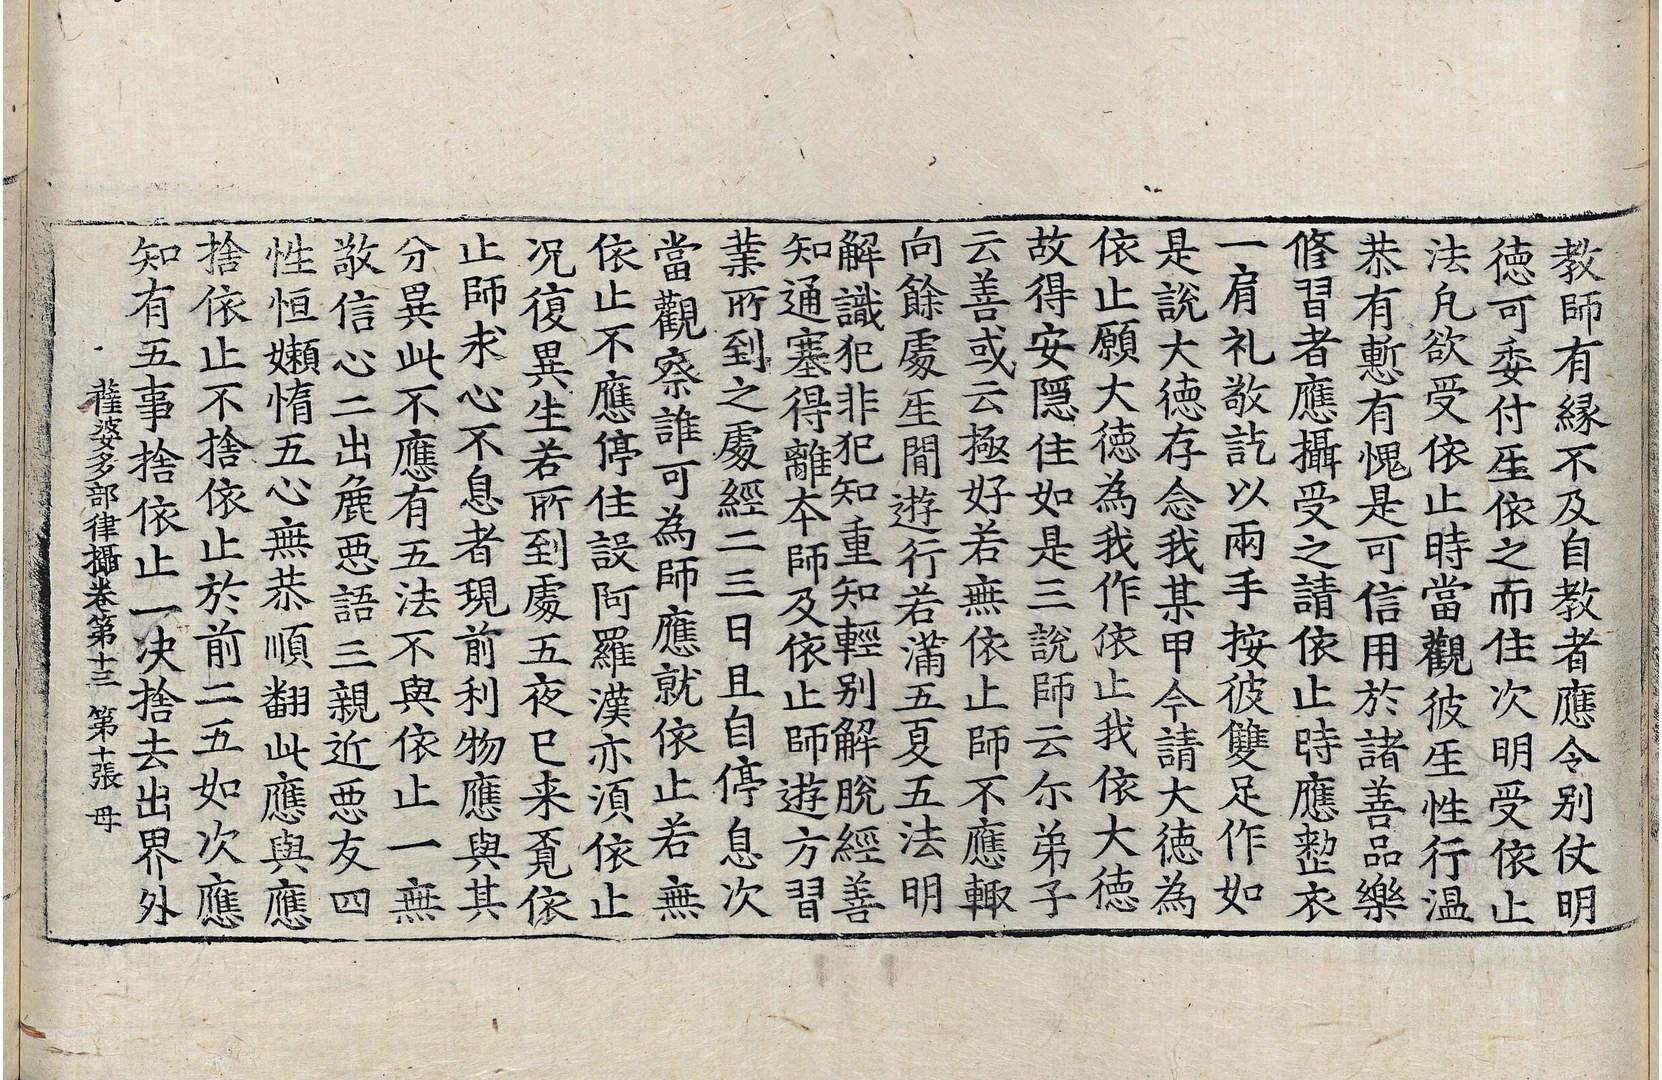 教師有縁不及自教者應令別仗明
徳可委付𤯔依之而住次明受依止
法凢欲受依止時當觀彼𤯔性行温
恭有慙有愧是可信用於諸善品樂
修習者應攝受之請依止時應整衣
一肩礼敬訖以兩手按彼雙足作如
是説大徳存念我某甲今請大徳為
依止願大徳為我作依止我依大徳
故得安隱住如是三説師云尒弟子
云善或云極好若無依止師不應輙
向餘處𤯔間遊行若滿五夏五法明
解識犯非犯知重知輕別解脫經善
知通塞得離夲師及依止師遊方習
業所到之處經二三日且自停息次
當觀察誰可為師應就依止若無
依止不應停住設阿羅漢亦湏依止
况復異生若所到處五夜已来覔依
止師求心不息者現前利物應與其
分異此不應有五法不與依止一無
敬信心二出麁惡語三親近惡友四
性恒嬾惰五心無恭順翻此應與應
捨依止不捨依止於前二五如次應
知有五事捨依止一决捨去出界外
薩婆多部律攝卷第十三　第十張　毋